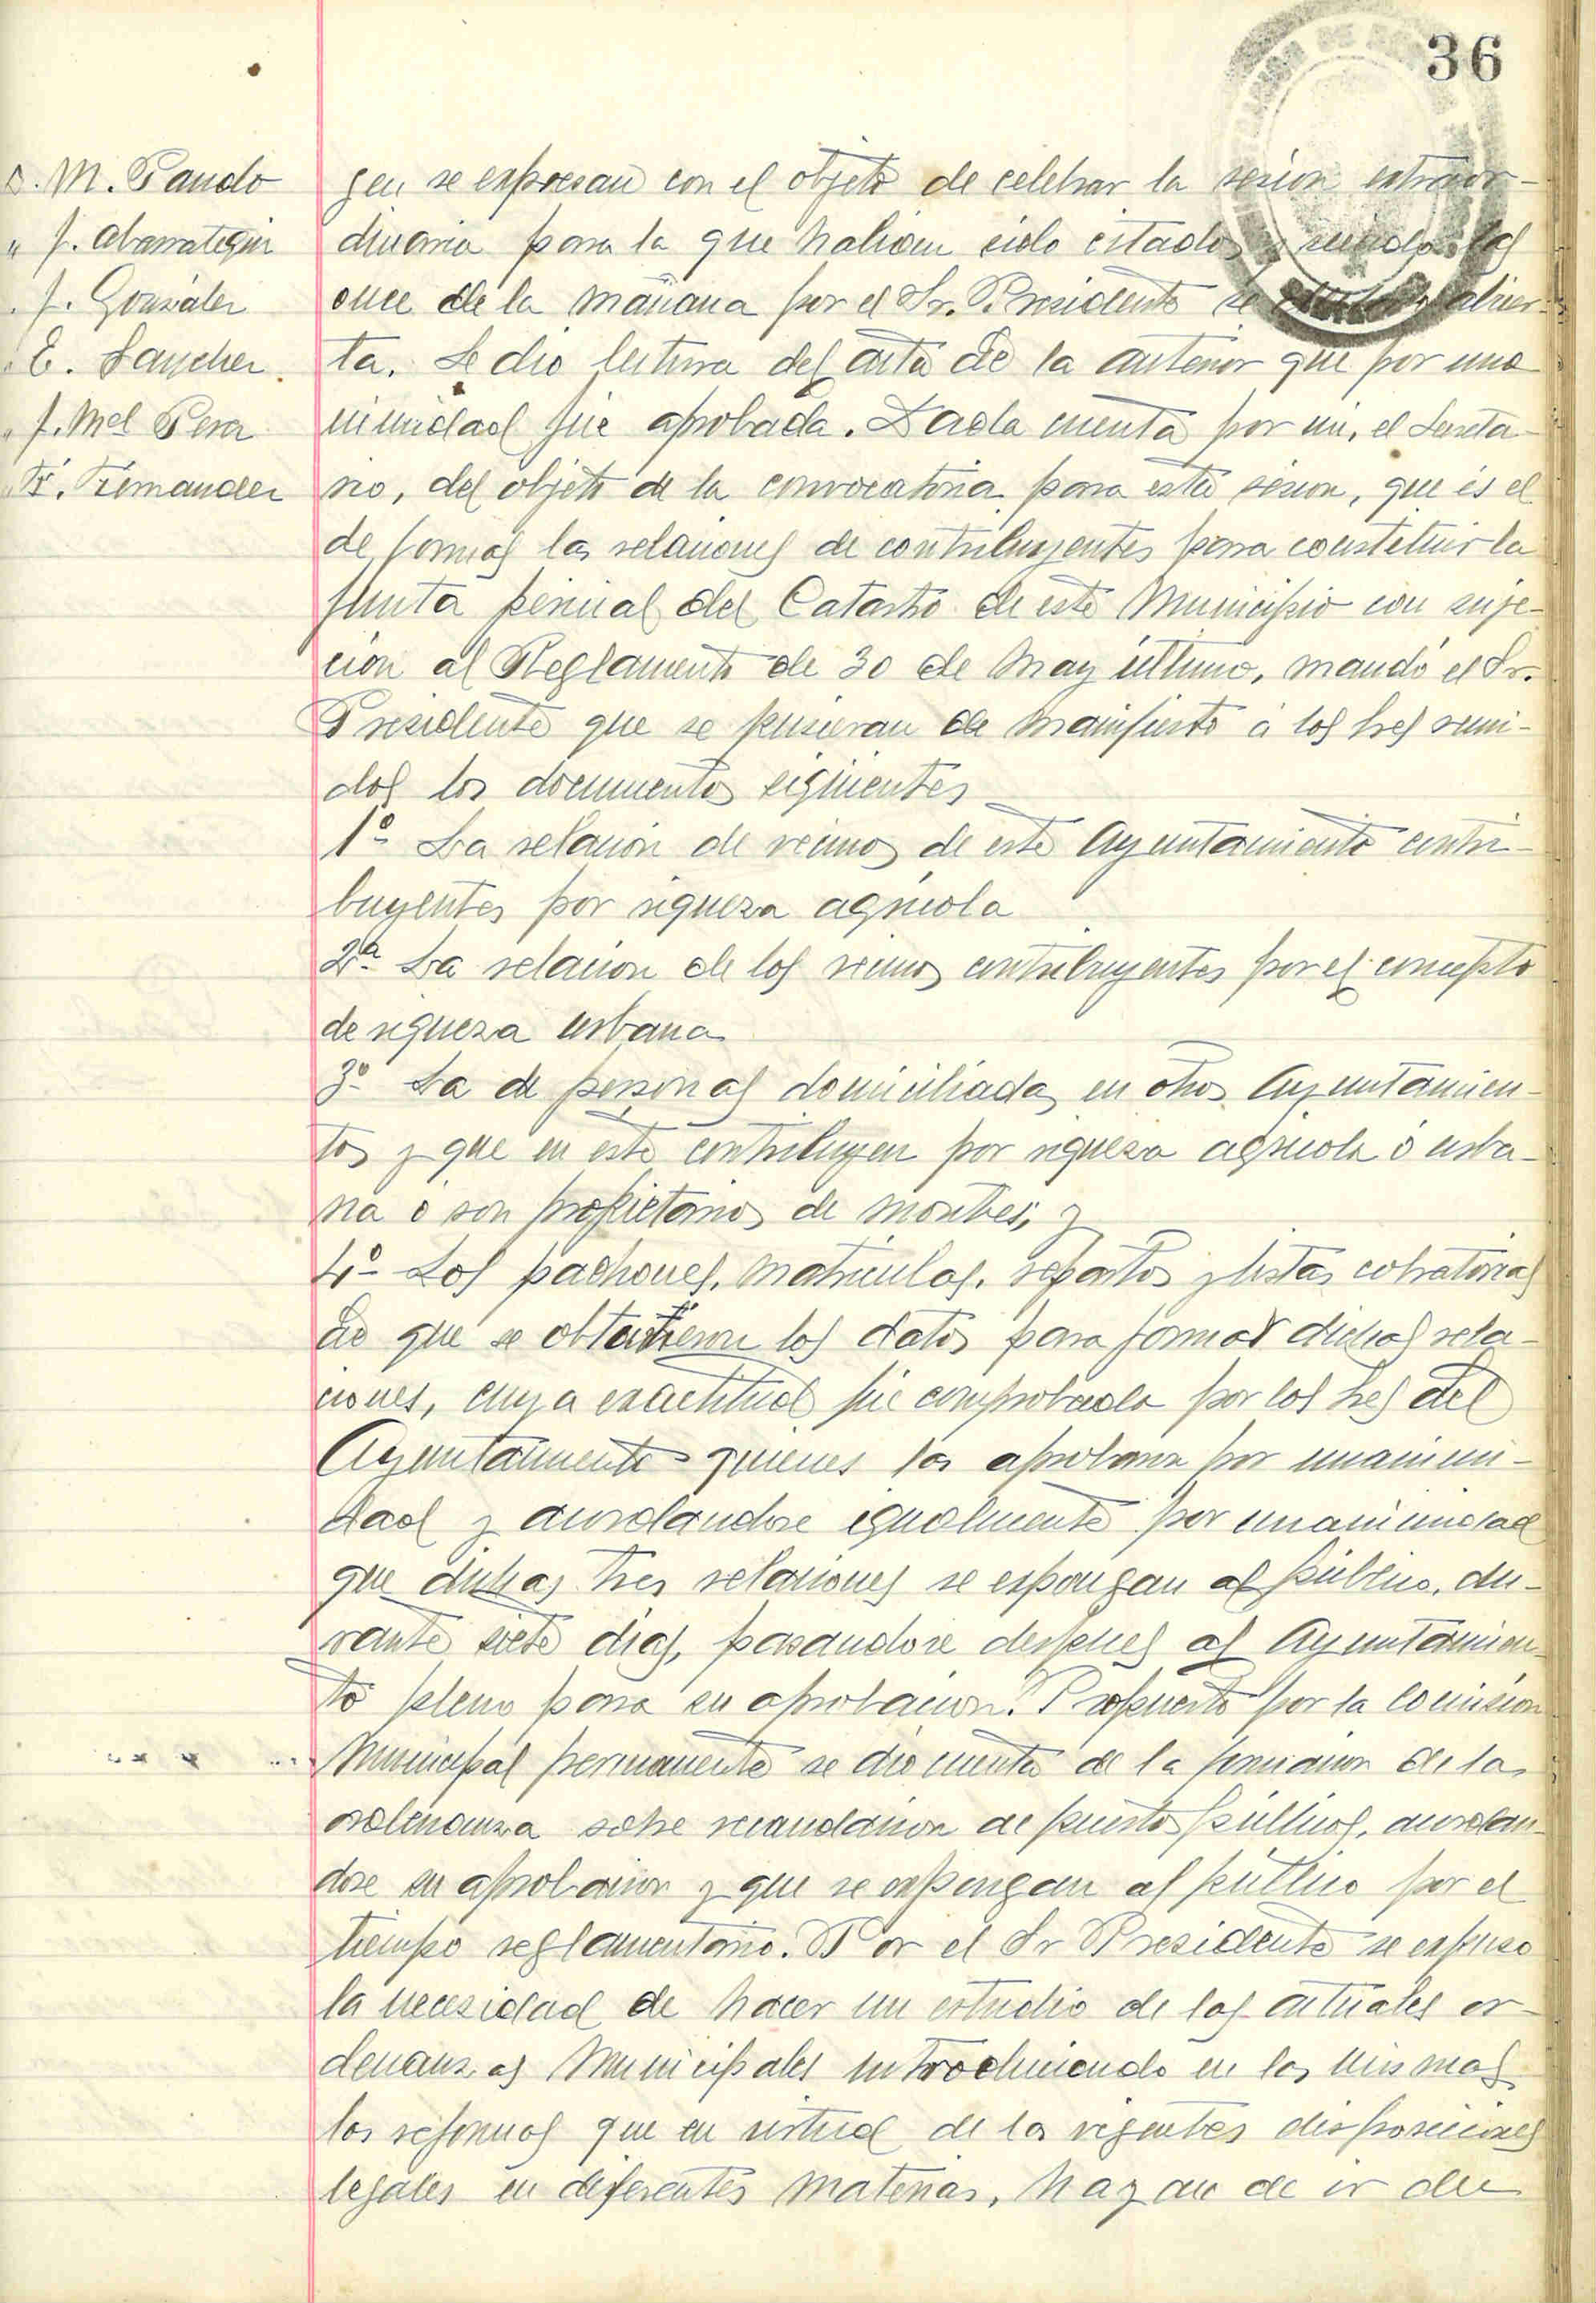 36
D. M. Pando
" J. Abarrategui
. J. González
. E. Sanchez.
" J. Mel Pera
" F. Fernandez
gen se expresan con el objeto de celebrar la sesion extraor-
dinaria para la que habian sido citados y siendo las
once de la mañana por el Sr. Presidente se abier-
ta. Se dio lectura del acta de la anterior que por una
nimidad fue aprobada. Dada cuenta por mi, el Secreta-
rio, del objeto de la convocatoria para esta sesion, que es el
de formar las relaciones de contribuyentes para constituir la
Junta pericial del Catastro de este Municipio con suje-
ción al Reglamento de 30 de May último, mandó el Sr.
Presidente que se pusieran de manifiesto á los Sres reuni-
dos los documentos siguientes
1º La relación de vecinos de este Ayuntamiento contri-
buyentes por riqueza agricola
2ª La relacion de los vecinos contribuyentes por el concepto
de riqueza urbana
3º La de personas domiciliadas en otros Ayuntamien-
tos y que en este contribuyen por riqueza agricola ó urba-
na ó son propietarios de montes; y
4º Los padrones, matriculas, repartos y listas cobratorias
de que se obtuvieron los datos para formar dichas rela-
ciones, cuya exactitud fue comprobada por los Sres del
Ayuntamiento quienes las aprobaron por unanimi-
dad y acordandose igualmente por unanimidad
que dichas tres relaciones se espongan al público, du-
rante siete dias, pasandose despues al Ayuntamien-
to pleno para su aprobacion. Propuesto por la Comision
Municipal permanente se dio cuenta de la formacion de la
ordenanza sobre recaudacion de puestos públicos, acordan-
dose su aprobacion y que se expongan al público por el
tiempo reglamentario. Por el Sr Presidente se expuso
la necesidad de hacer un estudio de las actuales or-
denanzas Municipales introduciendo en las mismas
las reformas que en virtud de las vigentes disposiciones
legales en diferentes materias, hayan de ir